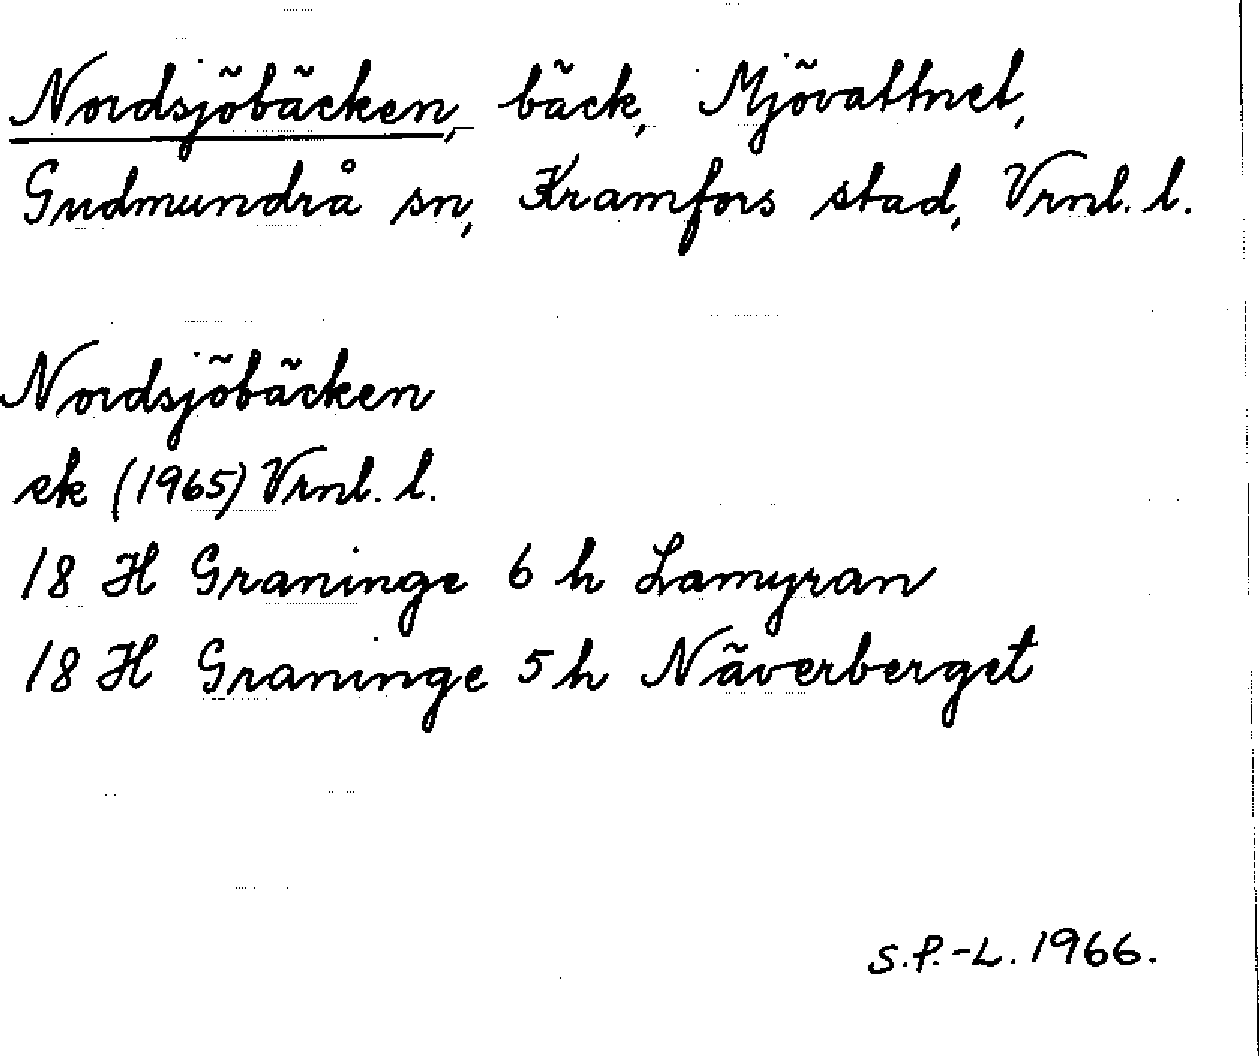 Nordsjöbäcken, bäck, Mjövattnet,
Gudmundrå sn, Kramfors stad, Vrnl. l.
Nordsjöbäcken
ek (1965) Vrnl. l.
18 H Graninge 6 h Lamyran
18 H Graninge 5 h Näverberget
S.P.-L. 1966.